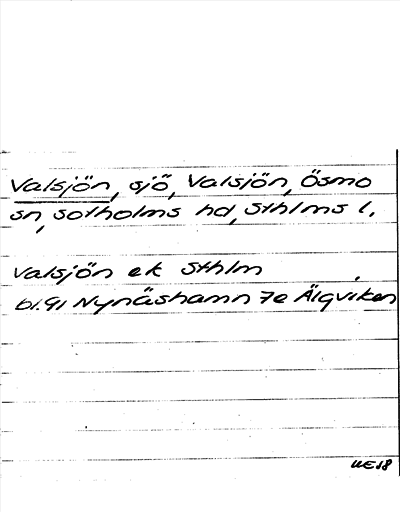 Valsjön, sjö, Valsjön, Ösmo
sn, Sotholms hd, Sthlms l.
Valsjön ek Sthlm
bl.91 Nynäshamn 7e Älgviken
UE18